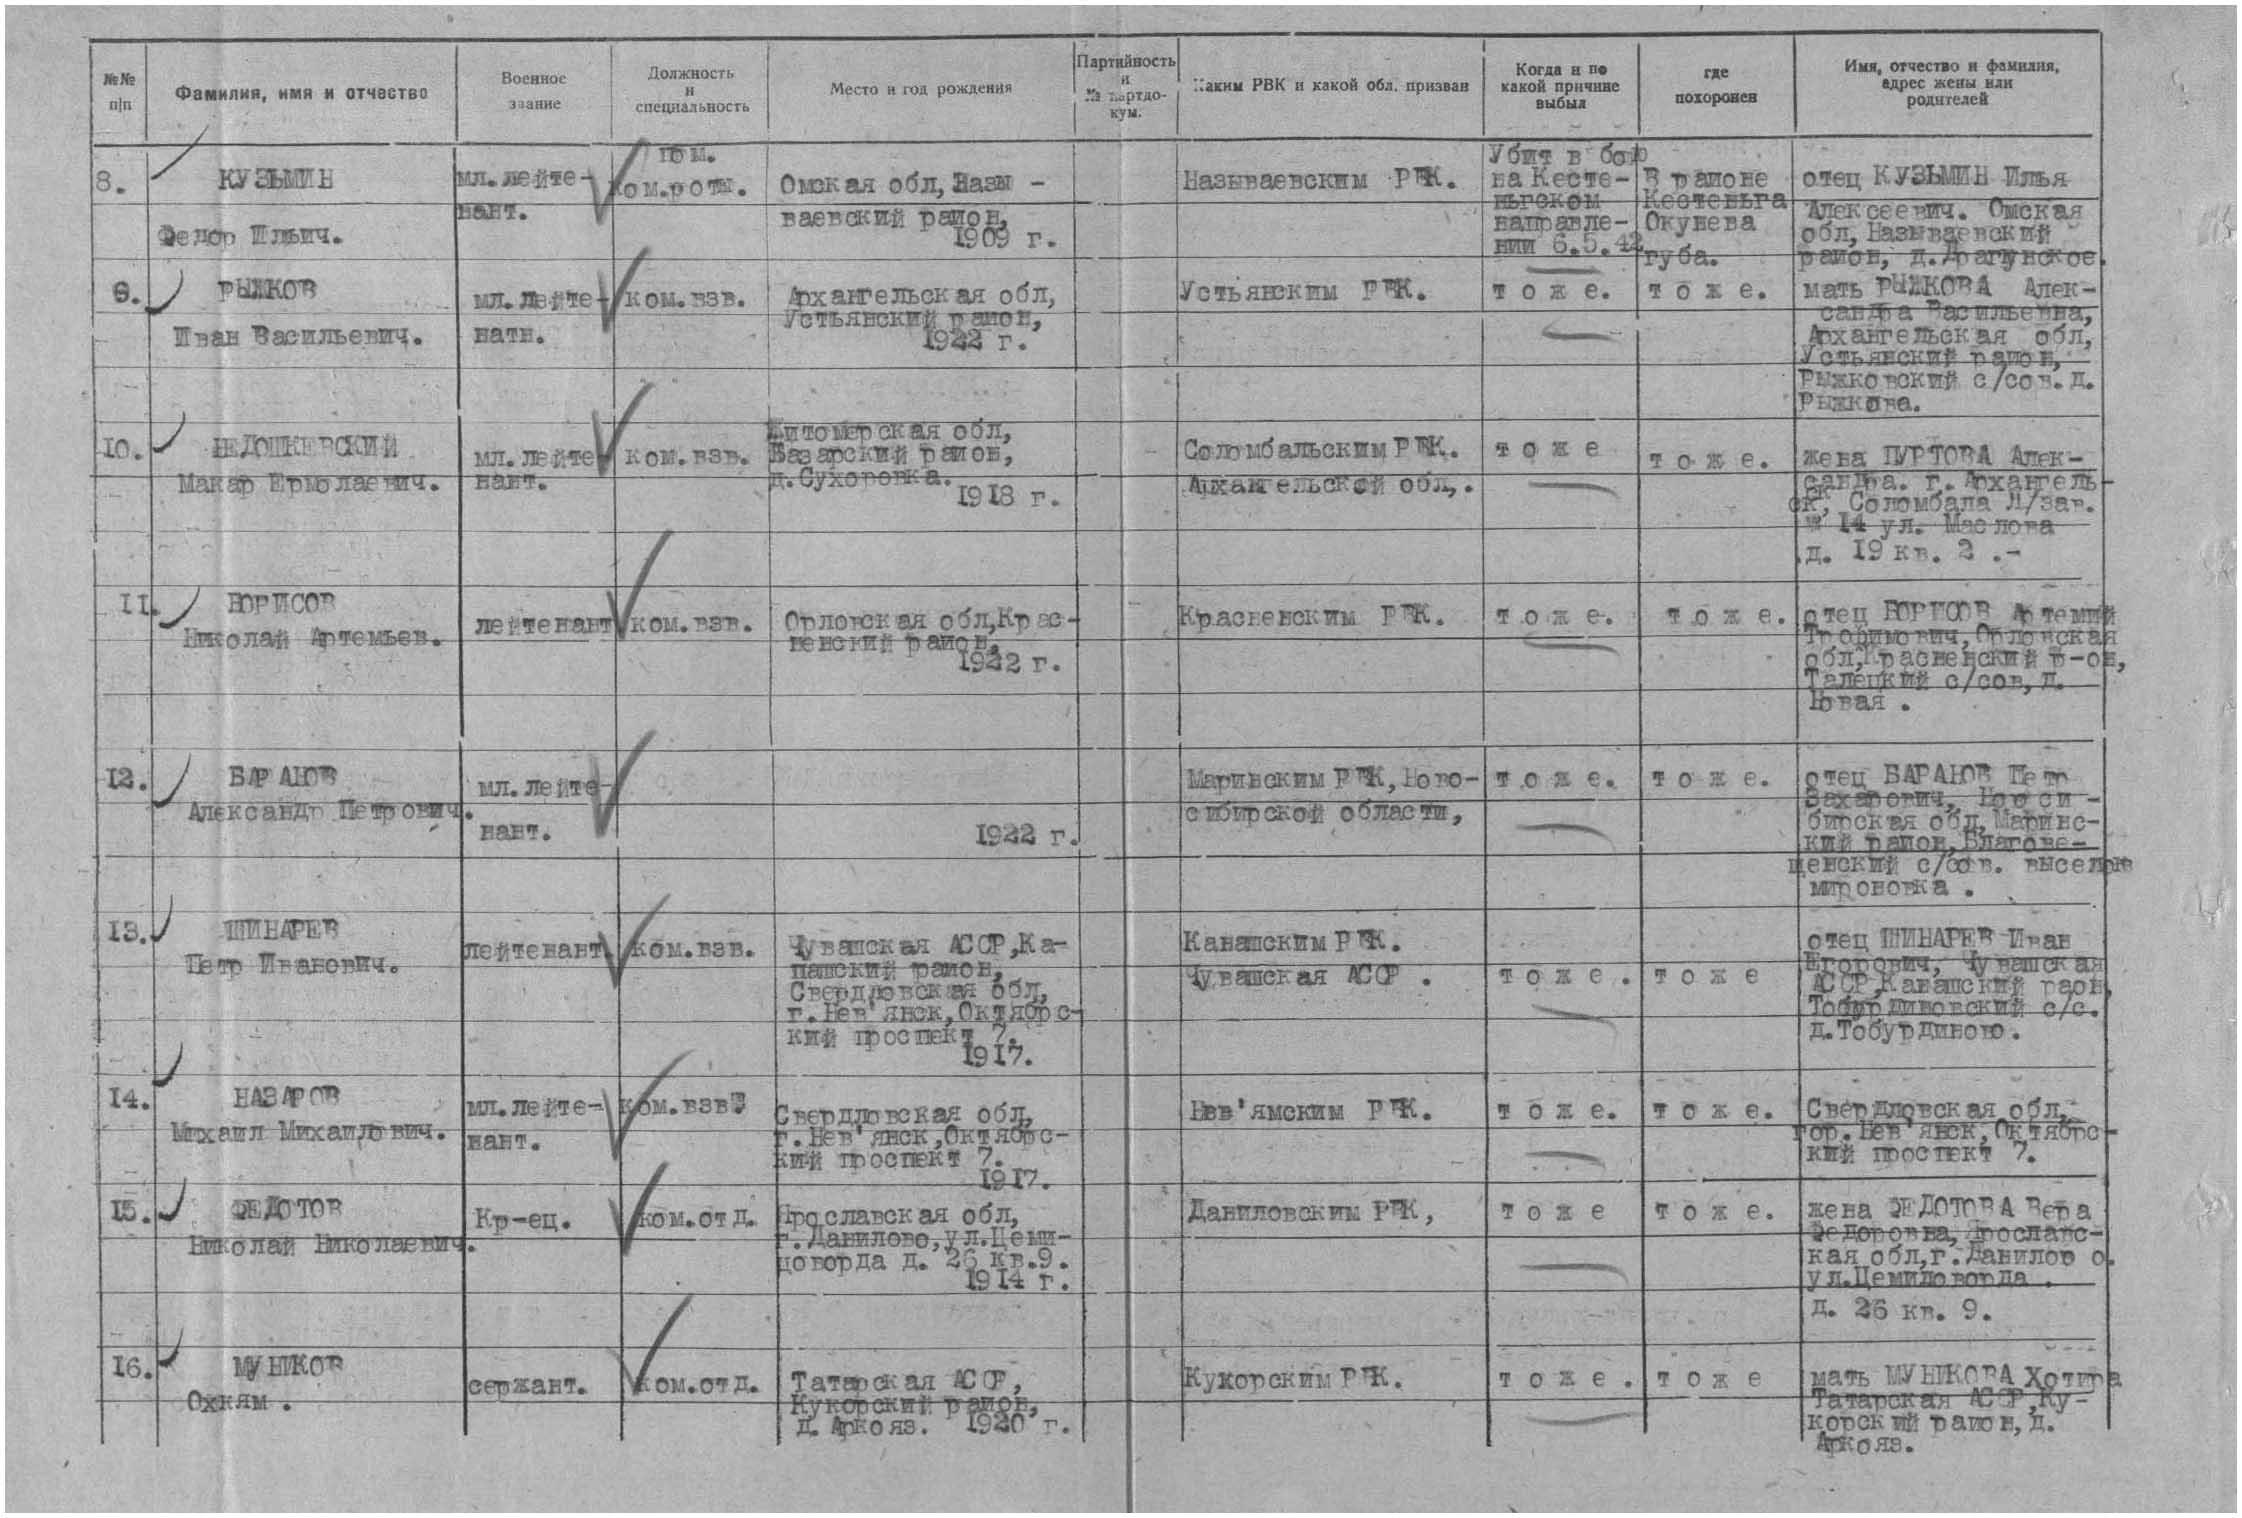 №№ п|п
Фамилия, имя и отчество
Военное звание
Должность и специальность
Место и год рождения
Партийность и № партдокум.
Каким РВК и какой обл. призван
Когда и по какой причине выбыл
где похоронен
Имя, отчество и фамилия, адрес жены или родителей
8.
КУЗЬМИН
Федор Ильич.
мл.лейте-
нант.
пом.
ком.роты.
Омская обл, Назы -
ваевский район,
1909 г.
Называевским РВК.
Убит в бою
на Кесте-
ньгском
направле-
нии 6.5.42
В районе
Кестеньга
Окунева
губа.
отец КУЗЬМИН Илья
Алексеевич. Омская
обл, Называевский
район, д.Драгунское.
9.
РЫЖКОВ
Иван Васильевич.
мл.лейте-
натн.
ком.взв.
Архангельская обл,
Устьянский район,
1922 г.
Устьянским РВК.
тоже.
тоже.
мать РЫЖКОВА Алек-
сандра Васильевна,
Архангельская обл,
Устьянский район,
Рыжковский с/сов. д.
Рыжкова.
10.
НЕДОШКЕВСКИЙ
Макар Ермолаевич.
мл.лейте-
нант.
ком.взв.
Житомерская обл,
Базарский район,
д.Сухоровка.
1918 г.
Соломбальским РВК.
Архангельской обл,.
тоже
тоже.
жена ПУРТОВА Алек-
сандра. г. Архангель-
ск, Соломбала Л/зав.
№ 14 ул. Маслова
д. 19 кв. 2 .-
11.
БОРИСОВ
Николай Артемьев.
лейтенант
ком.взв.
Орловская обл,Крас-
ненский район,
1922 г.
Красненским РВК.
тоже.
тоже.
отец БОРИСОВ Артемий
Трофимович,Орловская
обл,Красненский р-он,
Талецкий с/сов, д.
Новая .
12.
БАРАНОВ
Александр Петрович.
мл.лейте-
нант.
1922 г.
Маринским РВК, Ново-
сибирской области,
тоже.
тоже.
отец БАРАНОВ Петр
Захарович, Новоси -
бирская обл, Маринс-
кий район, Благове-
щенский с/сов. выселок
мироновка .
13.
ШИНАРЕВ
Петр Иванович.
лейтенант.
ком.взв.
Чувашская АССР,Ка-
нашский район,
Свердловская обл,
г.Нев'янск,Октябрс-
кий проспект 7.
1917.
Канашским РВК.
Чувашская АССР .
тоже.
тоже
отец ШИНАРЕВ Иван
Егорович, Чувашская
АССР,Канашский раон,
Тобурдиновский с/с.
д.Тобурдиново.
14.
НАЗАРОВ
Михаил Михаилович.
мл.лейте-
нант.
ком.взв.
Свердловская обл,
г.Нев'янск,Октябрс-
кий проспект 7.
1917.
Нев'ямским РВК.
тоже.
тоже.
Свердловская обл,
гор.Нев'янск,Октябрс-
кий проспект 7.
15.
ФЕДОТОВ
Николай Николаевич.
Кр-ец.
ком.отд.
Ярославская обл,
г.Данилово,ул.Цеми-
доворда д. 26 кв.9.
1914 г.
Даниловским РВК,
тоже
тоже.
жена ФЕДОТОВА Вера
Федоровна, Ярославс-
кая обл,г.Данилов о.
ул.Цемидоворда .
д. 26 кв. 9.
16.
МУНИКОВ
Охкям .
сержант.
ком.отд.
Татарская АССР,
Кукорский район,
д.Аркояз. 1920 г.
Кукорским РВК.
тоже.
тоже
мать МУНИКОВА Хотира
Татарская АССР,Ку-
корский район, д.
Аркояз.